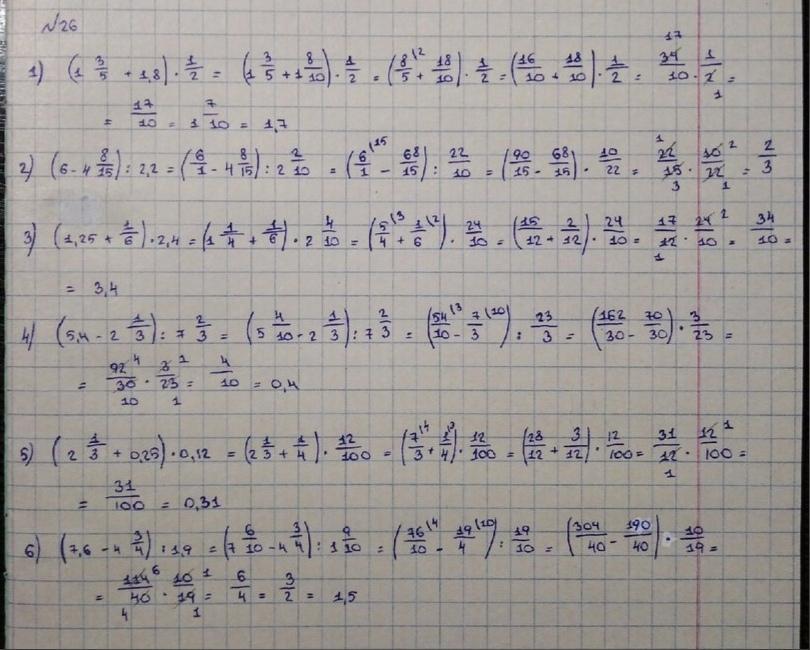 №26
1) (1 3/5 + 1,8) · 1/2 = (1 3/5 + 1 8/10) · 1/2 = (8/5 (2 + 18/10) · 1/2 = (16/10 + 18/10) · 1/2 = 34 17/10 · 1/2 1 =
= 17/10 = 1 7/10 = 1,7
2) (6 - 4 8/15) : 2,2 = (6/1 - 4 8/15) : 2 2/10 = (6/1 (15 - 68/15) : 22/10 = (90/15 - 68/15) · 10/22 = 22 1/15 3 · 10 2/22 1 = 2/3
3) (1,25 + 1/6) · 2,4 = (1 1/4 + 1/6) · 2 4/10 = (5/4 (3 + 1/6 (2) · 24/10 = (15/12 + 2/12) · 24/10 = 17/12 1 · 24 2/10 = 34/10 =
= 3,4
4) (5,4 - 2 1/3) : 7 2/3 = (5 4/10 - 2 1/3) : 7 2/3 = (54/10 (3 - 7/3 (10) : 23/3 = (162/30 - 70/30) · 3/23 =
= 92 4/30 10 · 3 1/23 1 = 4/10 = 0,4
5) (2 1/3 + 0,25) · 0,12 = (2 1/3 + 1/4) · 12/100 = (7/3 (4 + 1/4 (3) · 12/100 = (28/12 + 3/12) · 12/100 = 31/12 1 · 12 1/100 =
= 31/100 = 0,31
6) (7,6 - 4 3/4) : 1,9 = (7 6/10 - 4 3/4) : 1 9/10 = (76/10 (4 - 19/4 (10) : 19/10 = (304/40 - 190/40) · 10/19 =
= 114 6/40 4 · 10 1/19 1 = 6/4 = 3/2 = 1,5